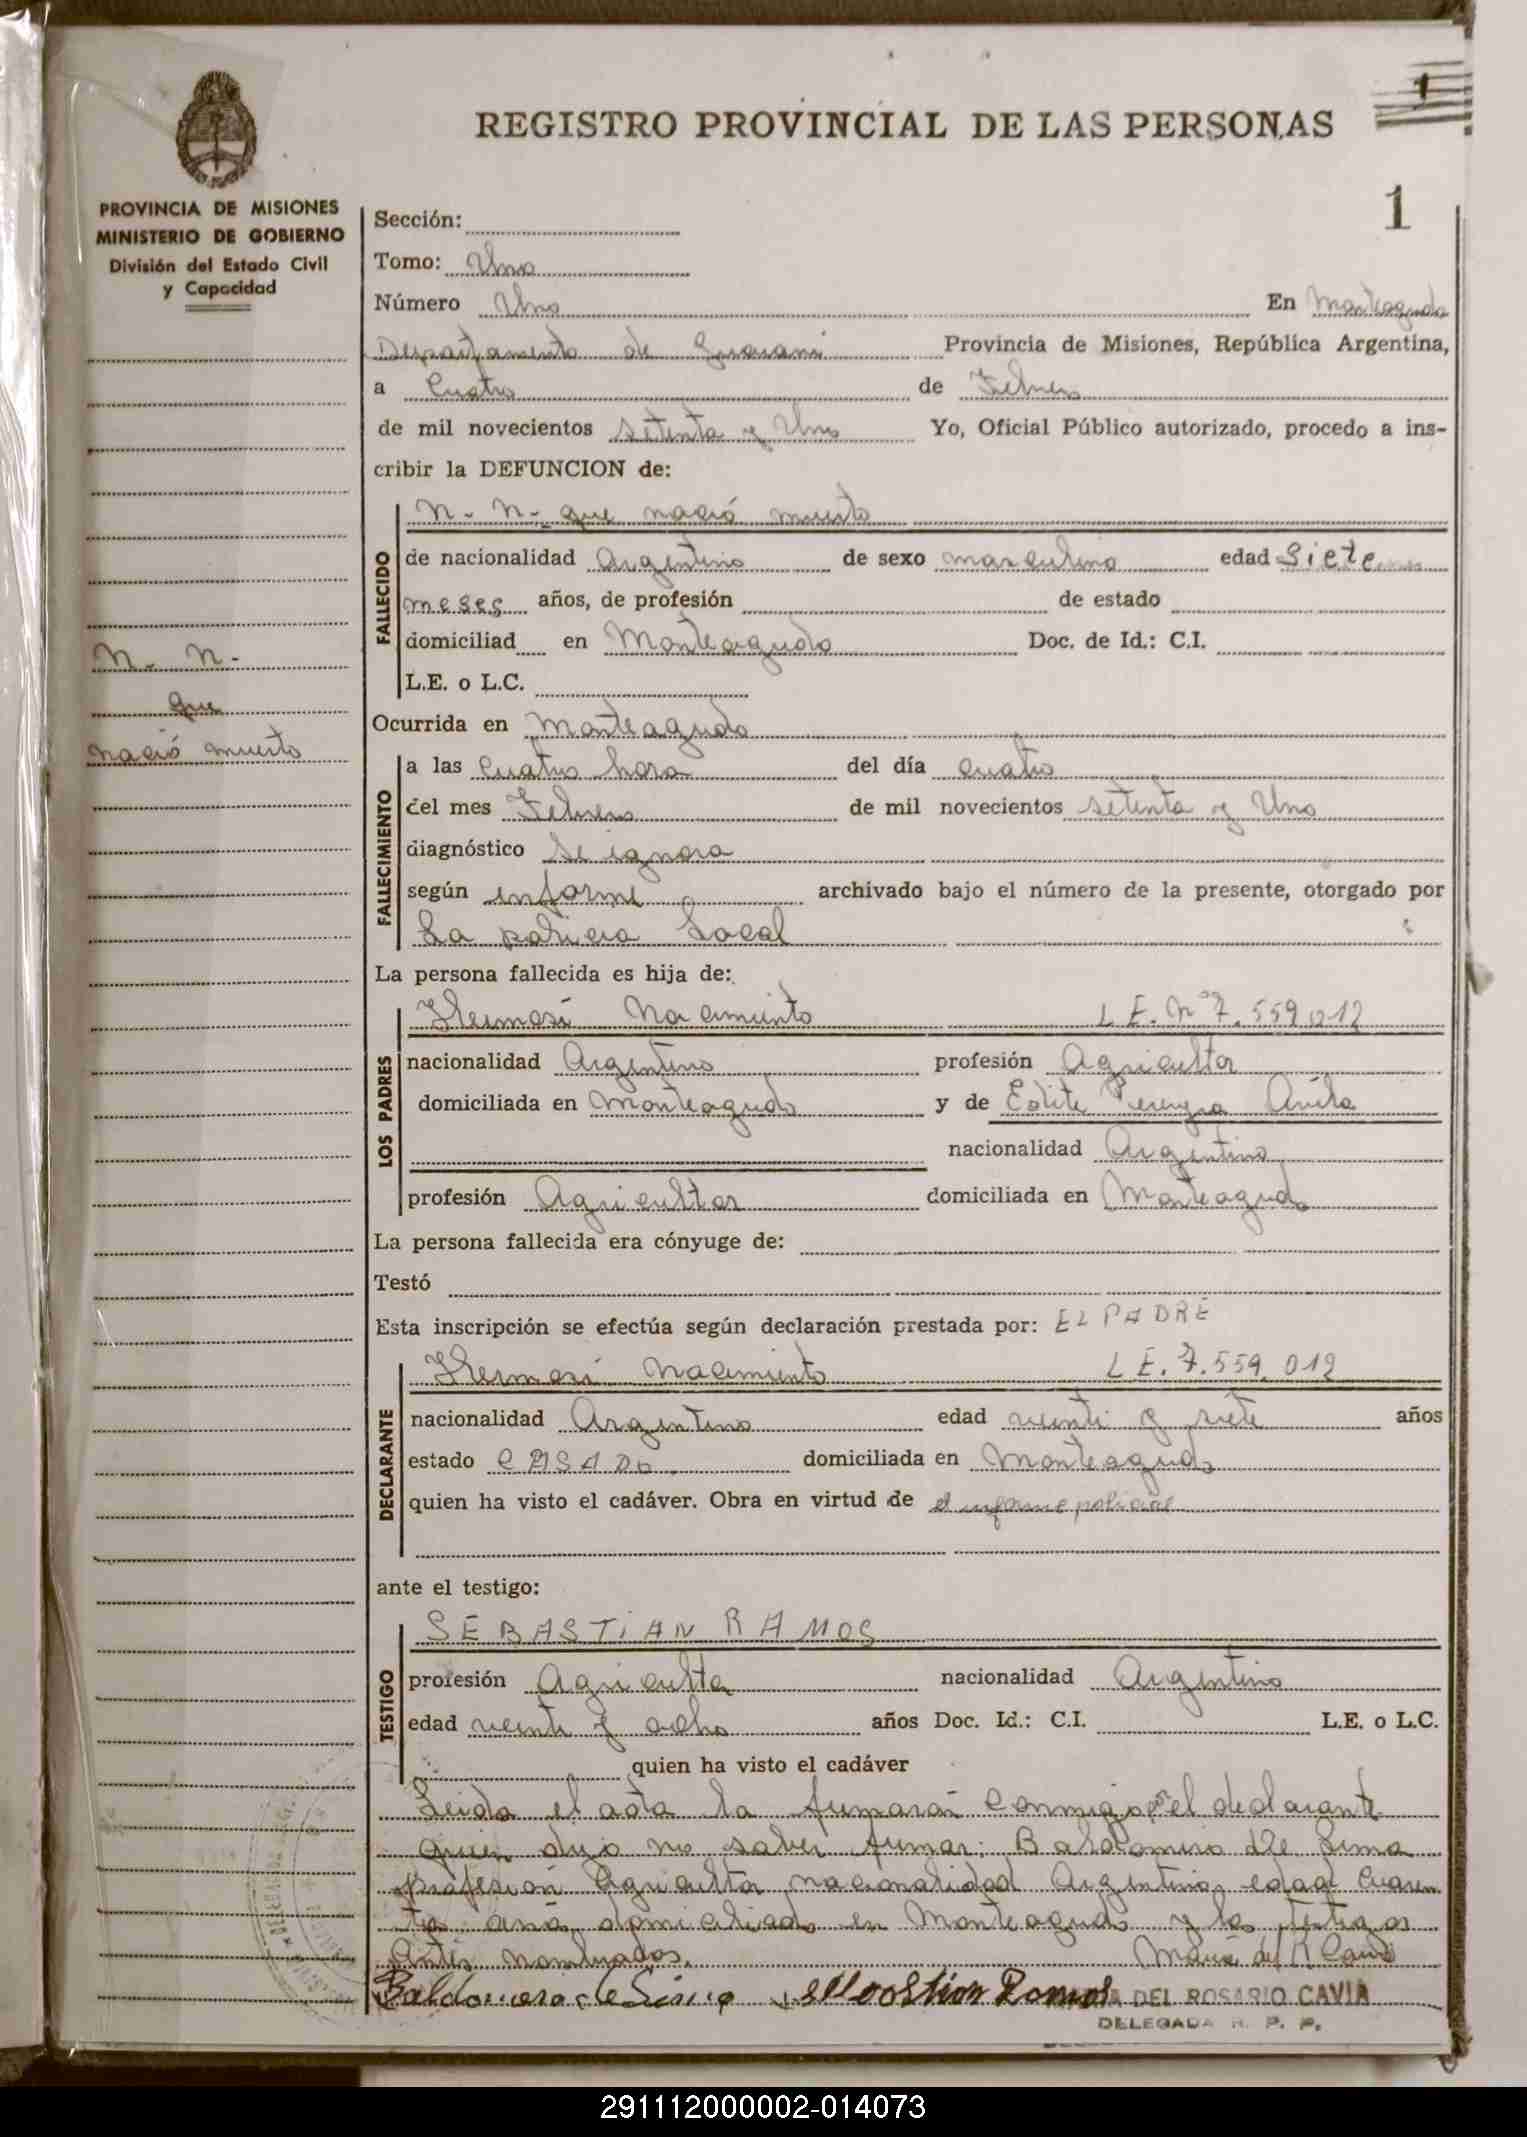 1
REGISTRO PROVINCIAL DE LAS PERSONAS
1
PROVINCIA DE MISIONES
MINISTERIO DE GOBIERNO
División del Estado Civil
y Capacidad
N. N.
que
nació muerto
Sección:
Tomo: Uno
Número Uno En Monteagudo
Departamento de Guarani Provincia de Misiones, República Argentina,
a Cuatro de Febrero
de mil novecientos setenta y Uno Yo, Oficial Público autorizado, procedo a ins-
cribir la DEFUNCION de:
N. N. que nació muerto
FALLECIDO
de nacionalidad Argentino de sexo masculino edad Siete
meses años, de profesión de estado
domiciliad en Monteagudo Doc. de Id.: C.I.
L.E. o L.C.
Ocurrida en Monteagudo
FALLECIMIENTO
a las cuatro hora del día cuatro
del mes Febrero de mil novecientos setenta y Uno
diagnóstico se ignora
según informe archivado bajo el número de la presente, otorgado por
La policia Local
La persona fallecida es hija de:
Nacimiento L E. Nº 7.559.012
LOS PADRES
nacionalidad Argentino profesión Agricultor
domiciliada en Monteagudo y de Edite Pereyra Avila
nacionalidad Argentino
profesión Agricultor domiciliada en Monteagudo
La persona fallecida era cónyuge de:
Testó
Esta inscripción se efectúa según declaración prestada por: EL PADRE
Nacimiento L E. 7.559.012
DECLARANTE
nacionalidad Argentino edad veinti y siete años
estado CASADO. domiciliada en Monteagudo
quien ha visto el cadáver. Obra en virtud de el informe policial
ante el testigo:
SEBASTIAN RAMOS
TESTIGO
profesión Agricultor nacionalidad Argentino
edad veinti y ocho años Doc. Id.: C.I. L.E. o L.C.
quien ha visto el cadáver
Leida el acta la firmaran conmigo, el declarante
quien dijo no saber firmar: Baldomiro de Lima
profesión Agricultor nacionalidad Argentino, edad cuaren
ta domiciliado en Monteagudo y los testigos
Antes nombrados. Maria del R Cavia
Ramos DEL ROSARIO CAVIA
DELEGADA R. P. P.
291112000002-014073